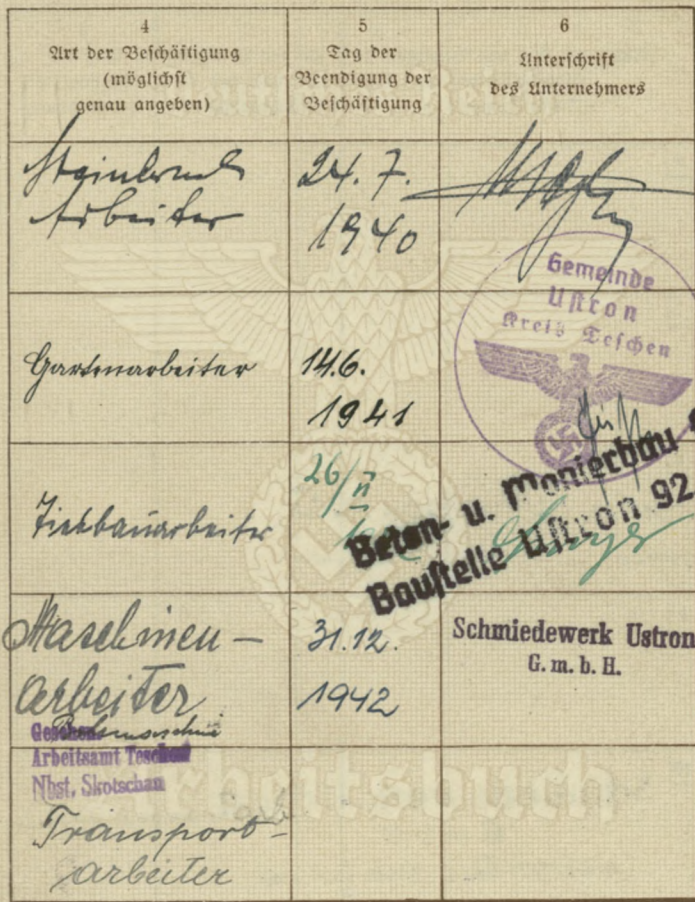 4
Art der Beschäftigung
(möglichst
genau angeben)
5
Tag der
Beendigung der
Beschäftigung
6
Unterschrift
des Unternehmers
Steinbruch
Arbeiter
24.7.
1940
Gemeinde
Ustron
Kreis Teschen
Gartenarbeiter
14.6.
1941
Tiefbauarbeiter
26/II
Beton- u. Monierbau
Baustelle Ustron 92
Maschinen-
arbeiter
31.12.
1942
Schmiedewerk Ustron
G. m. b. H.
Gesehen
Arbeitsamt Teschen
Nbst. Skotschau
Transport-
arbeiter
Arbeitsbuch